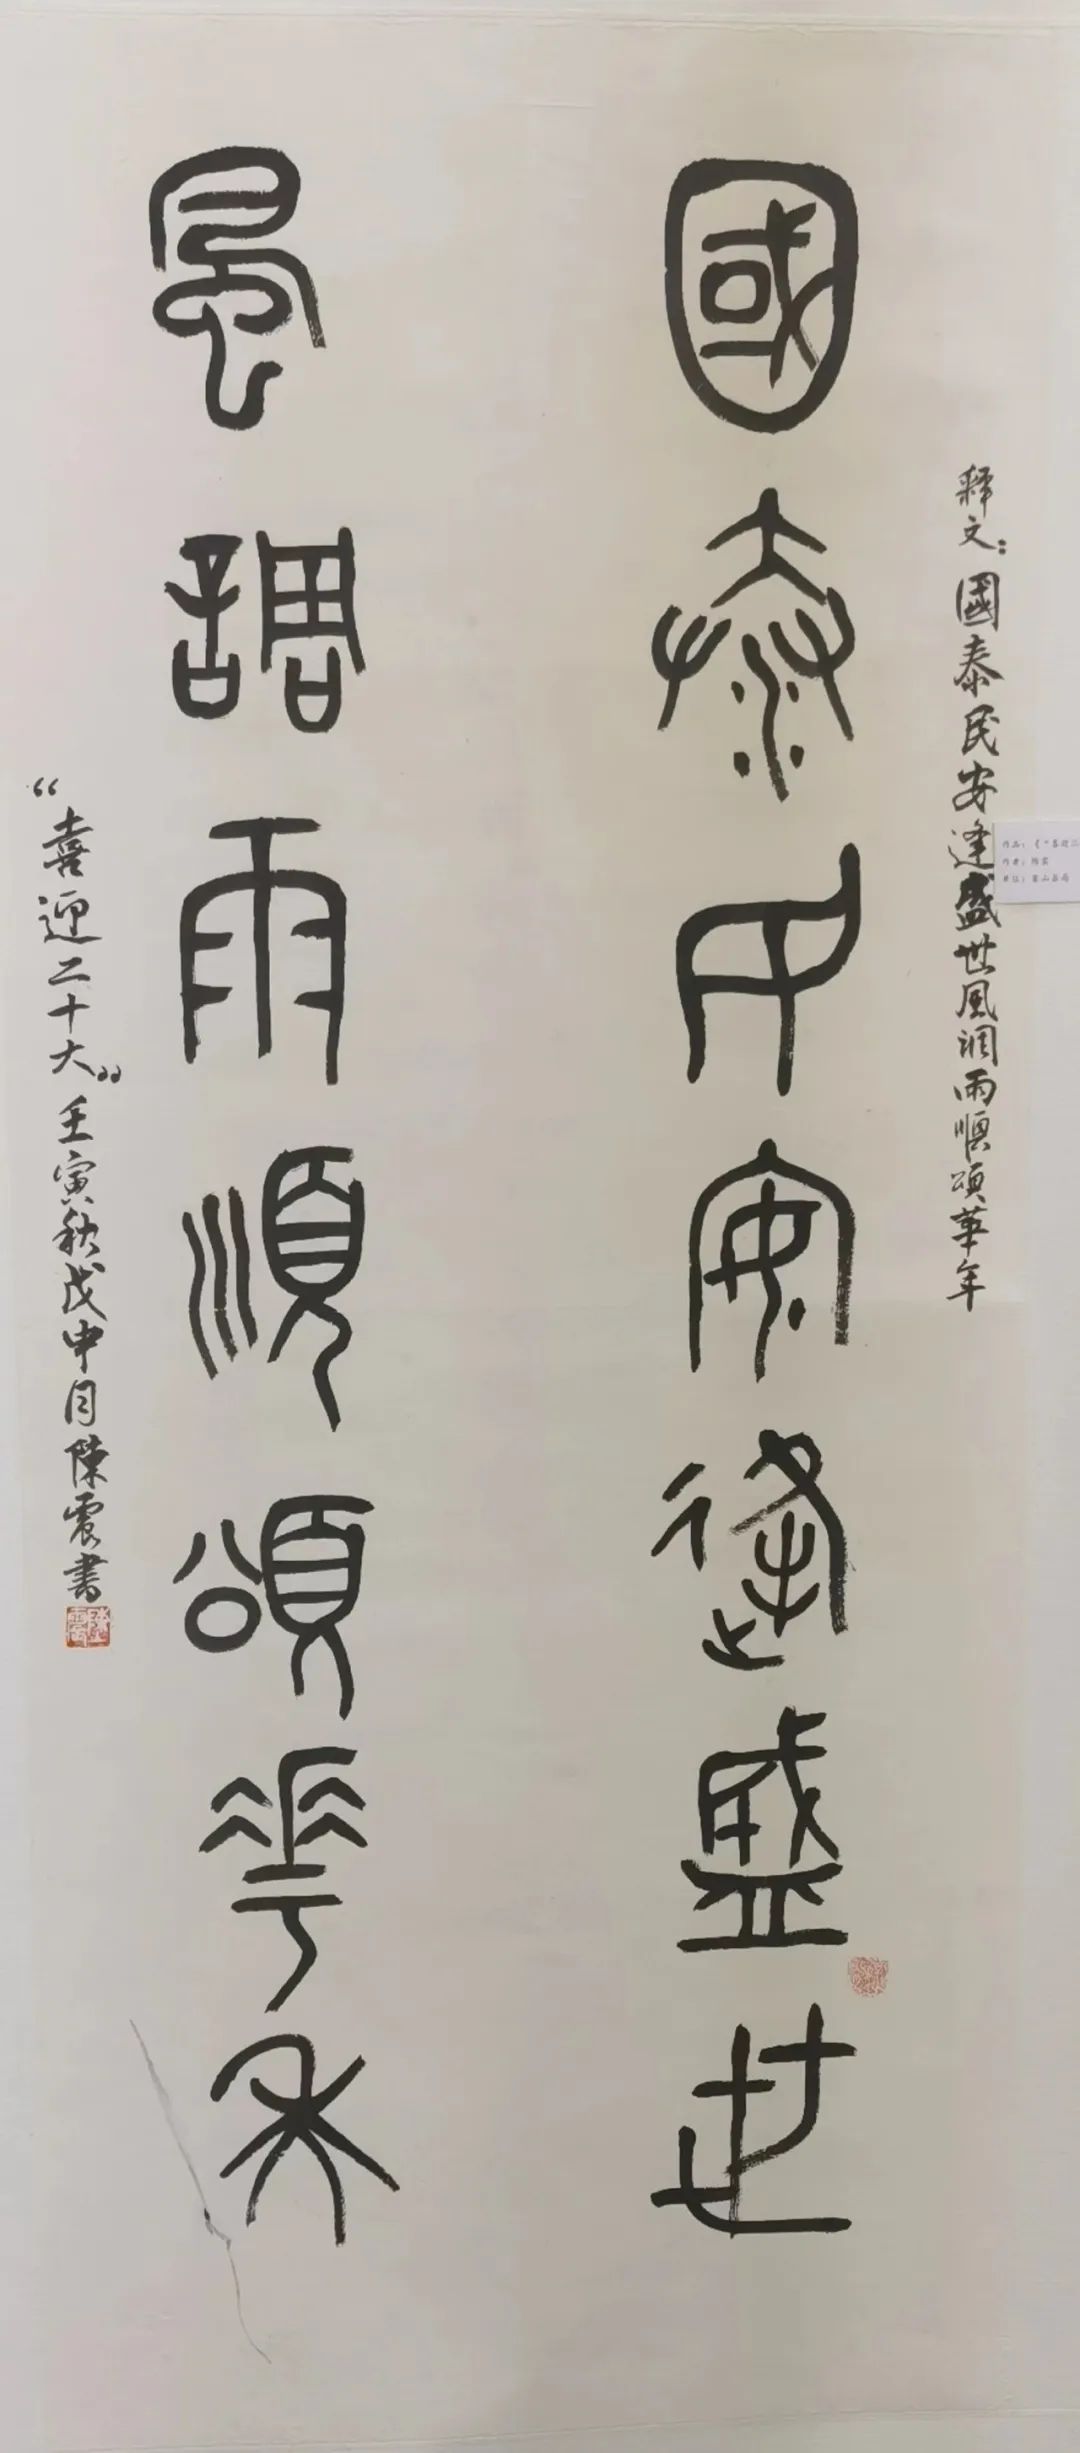 释文：國泰民安逢盛世風调雨順頌華年
國泰民安逢盛世
風調雨順頌華年
“喜迎二十大”壬寅秋戊申月陳震書
陳震
作品：《“喜迎二
作者：陈震